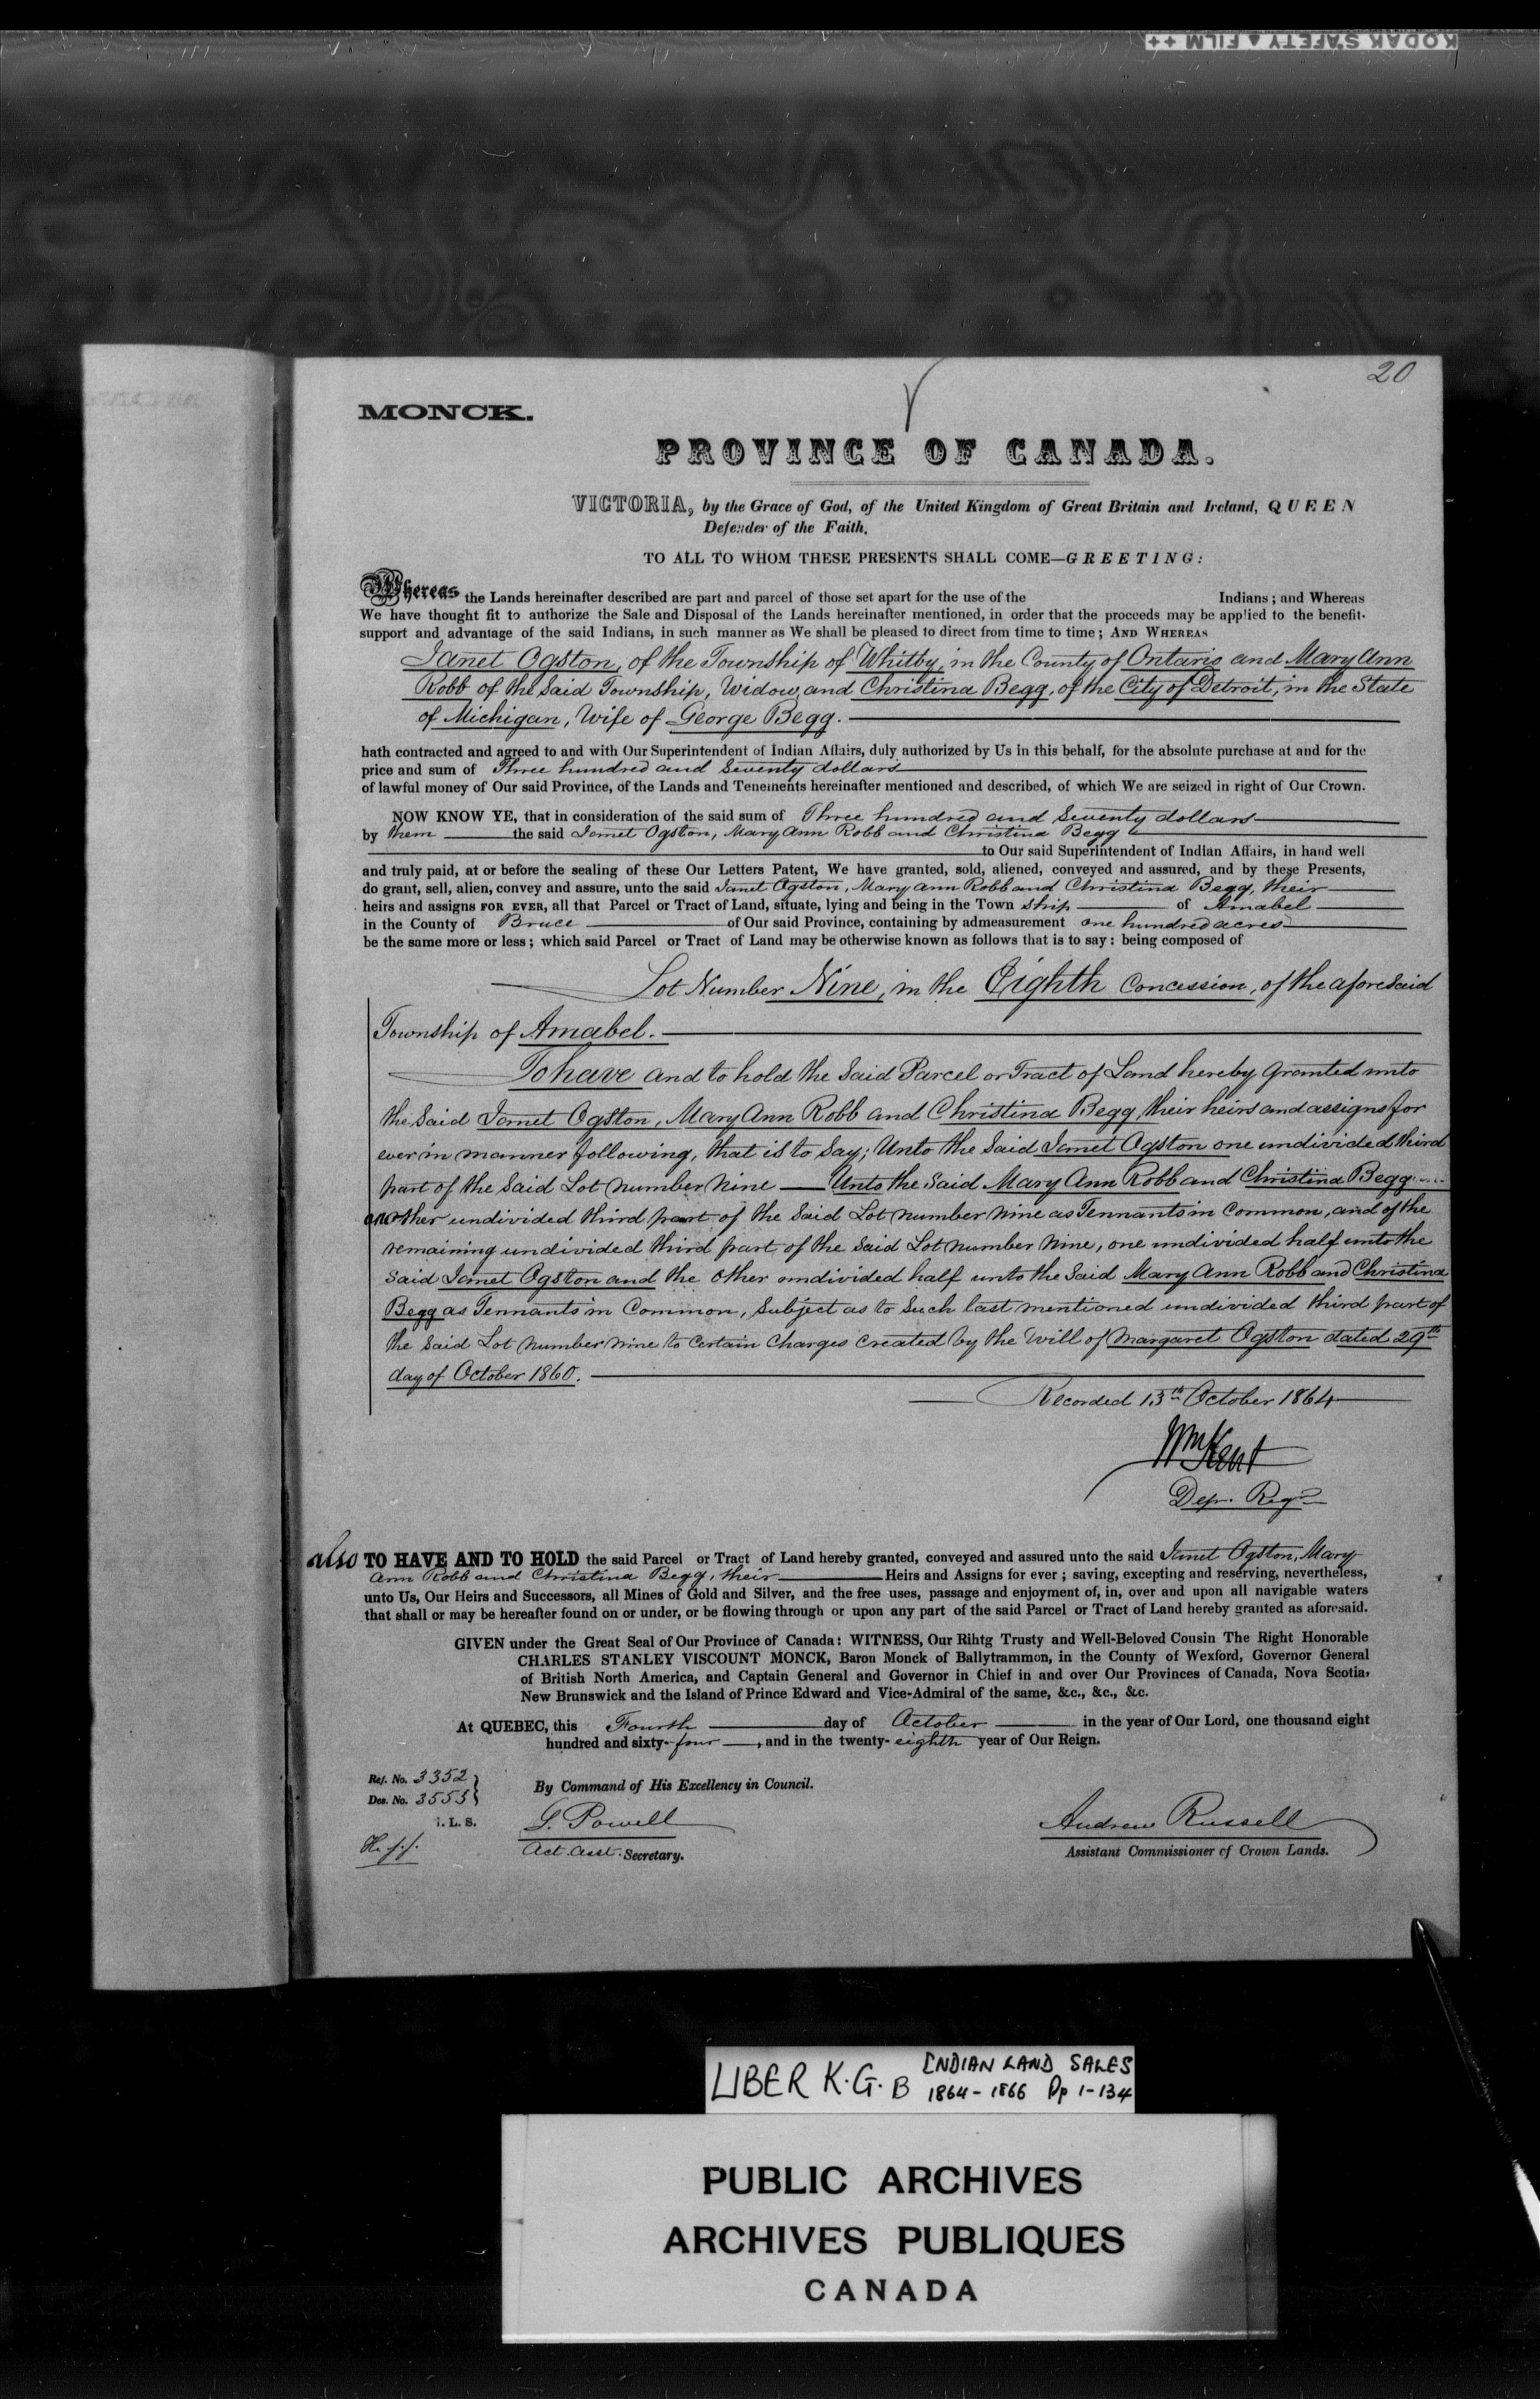 KODAK SAFETY ▲ FILM ++
20
MONCK.
PROVINCE OF CANADA.
VICTORIA, by the Grace of God, of the United Kingdom of Great Britain and Ireland, QUEEN
Defender of the Faith,
TO ALL TO WHOM THESE PRESENTS SHALL COME—GREETING:
Whereas the Lands hereinafter described are part and parcel of those set apart for the use of the Indians; and Whereas
We have thought fit to authorize the Sale and Disposal of the Lands hereinafter mentioned, in order that the proceeds may be applied to the benefit,
support and advantage of the said Indians, in such manner as We shall be pleased to direct from time to time; AND WHEREAS
Janet Ogston, of the Township of Whitby, in the County of Ontario and Mary Ann
Robb of the said Township, Widow, and Christina Begg, of the City of Detroit, in the State
of Michigan, Wife of George Begg.
hath contracted and agreed to and with Our Superintendent of Indian Affairs, duly authorized by Us in this behalf, for the absolute purchase at and for the
price and sum of Three hundred and Seventy dollars
of lawful money of Our said Province, of the Lands and Tenements hereinafter mentioned and described, of which We are seized in right of Our Crown.
NOW KNOW YE, that in consideration of the said sum of Three hundred and Seventy dollars
by them the said Janet Ogston, Mary Ann Robb and Christina Begg
to Our said Superintendent of Indian Affairs, in hand well
and truly paid, at or before the sealing of these Our Letters Patent, We have granted, sold, aliened, conveyed and assured, and by these Presents,
do grant, sell, alien, convey and assure, unto the said Janet Ogston, Mary Ann Robb and Christina Begg, their
heirs and assigns FOR EVER, all that Parcel or Tract of Land, situate, lying and being in the Town ship of Amabel
in the County of Bruce of Our said Province, containing by admeasurement one hundred acres
be the same more or less; which said Parcel or Tract of Land may be otherwise known as follows that is to say: being composed of
Lot Number Nine, in the Eighth Concession, of the aforesaid
Township of Amabel.
To have and to hold the said Parcel or Tract of Land hereby Granted unto
the said Janet Ogston, Mary Ann Robb and Christina Begg their heirs and assigns for
ever in manner following, that is to say; Unto the said Janet Ogston one undivided third
part of the said Lot number Nine — Unto the said Mary Ann Robb and Christina Begg
another undivided third part of the said Lot number nine as Tennants in Common, and of the
remaining undivided third part of the said Lot number Nine, one undivided half unto the
said Janet Ogston and the other undivided half unto the said Mary Ann Robb and Christina
Begg as Tennants in Common, Subject as to such last mentioned undivided third part of
the said Lot number nine to certain Charges created by the Will of Margaret Ogston dated 29th
day of October 1860.
Recorded 13th October 1864
Wm Kent
Dep. Regr
also TO HAVE AND TO HOLD the said Parcel or Tract of Land hereby granted, conveyed and assured unto the said Janet Ogston, Mary
Ann Robb and Christina Begg, their Heirs and Assigns for ever; saving, excepting and reserving, nevertheless,
unto Us, Our Heirs and Successors, all Mines of Gold and Silver, and the free uses, passage and enjoyment of, in, over and upon all navigable waters
that shall or may be hereafter found on or under, or be flowing through or upon any part of the said Parcel or Tract of Land hereby granted as aforesaid.
GIVEN under the Great Seal of Our Province of Canada: WITNESS, Our Rihtg Trusty and Well-Beloved Cousin The Right Honorable
CHARLES STANLEY VISCOUNT MONCK, Baron Monck of Ballytrammon, in the County of Wexford, Governor General
of British North America, and Captain General and Governor in Chief in and over Our Provinces of Canada, Nova Scotia,
New Brunswick and the Island of Prince Edward and Vice-Admiral of the same, &c., &c., &c.
At QUEBEC, this Fourth day of October in the year of Our Lord, one thousand eight
hundred and sixty-four, and in the twenty-eighth year of Our Reign.
Ref. No. 3352
Des. No. 3553
By Command of His Excellency in Council.
L. S.
G. Powell
Andrew Russell
Act. Asst. Secretary.
Assistant Commissioner of Crown Lands.
LIBER K.G. B INDIAN LAND SALES
1864-1866 Pp 1-134
PUBLIC ARCHIVES
ARCHIVES PUBLIQUES
CANADA